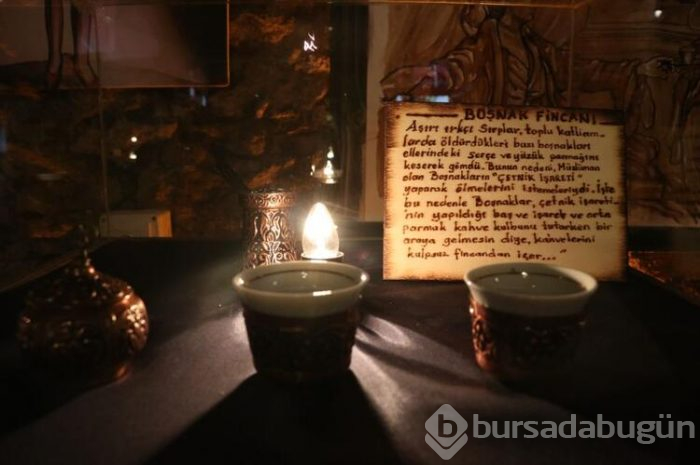 BOŞNAK FİNCANI
Aşırı ırkçı Sırplar, toplu katliam-
larda öldürdükleri bazı boşnakları
ellerindeki serçe ve yüzük parmağını
keserek gömdü. Bunun nedeni, Müslüman
olan Boşnakların "ÇETNİK İŞARETİ"
yaparak ölmelerini istemeleriydi. İşte
bu nedenle Boşnaklar, çetnik işareti-
nin yapıldığı baş ve işaret ve orta
parmak kahve kulbunu tutarken bir
araya gelmesin diye, kahvelerini
kulpsuz fincandan içer..."
b bursadabugün